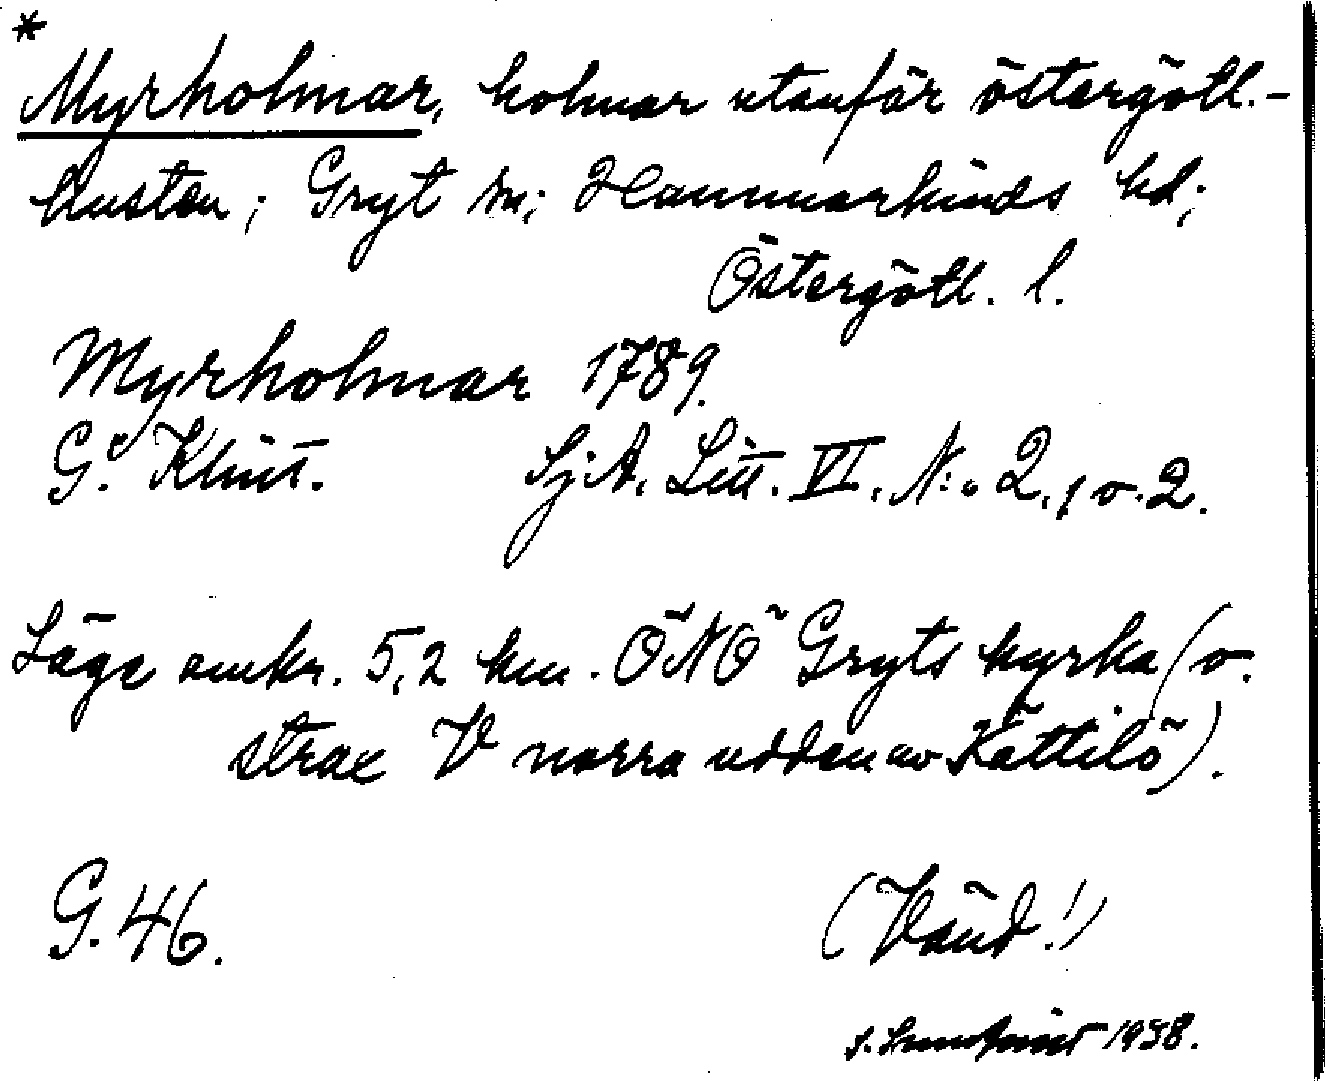 *
Myrholmar, holmar utanför östergötl.-
kusten; Gryt sn; Hammarkinds hd;
Östergötl. l.
Myrholmar 1789.
G. Klint. Sj.A. Litt. VI. N:o 2, 1 o. 2.
Läge omkr. 5,2 km. ÖNÖ Gryts kyrka (o.
strax V norra udden av Kättilö).
G. 46. (Vänd!)
1938.